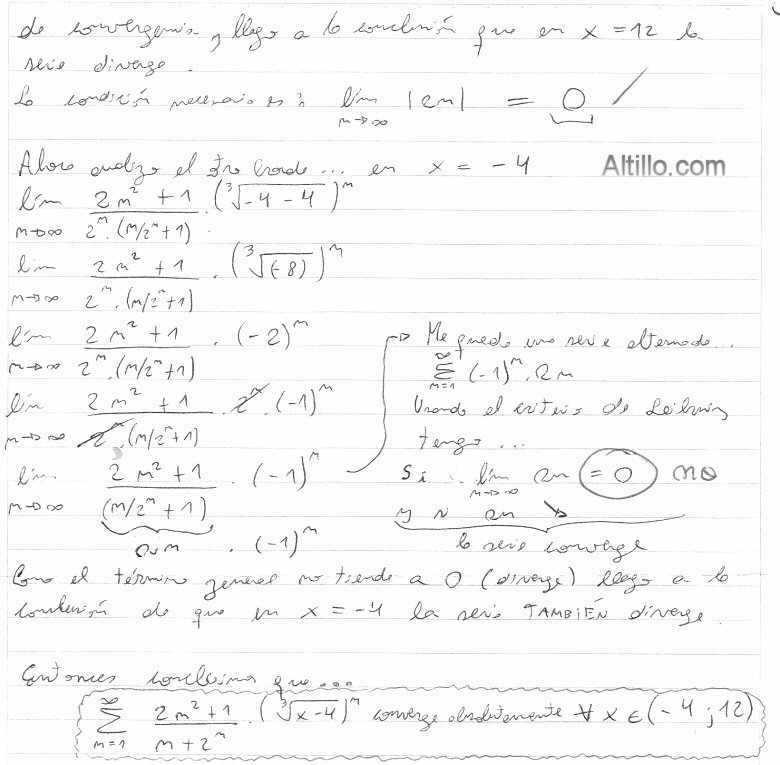 de convergencia, y llego a la conclusión que en x = 12 la
serie diverge.
La condición necesaria es: lím n→∞ |an| = 0 ✓
Ahora analizo el otro borde... en x = -4
Altillo.com
lím n→∞ (2n² + 1) / (2ⁿ . (n/2ⁿ + 1)) . (∛(-4 - 4))ⁿ
lim n→∞ (2n² + 1) / (2ⁿ . (n/2ⁿ + 1)) . (∛(-8))ⁿ
lím n→∞ (2n² + 1) / (2ⁿ . (n/2ⁿ + 1)) . (-2)ⁿ
lím n→∞ (2n² + 1) / (2ⁿ . (n/2ⁿ + 1)) . 2ⁿ . (-1)ⁿ
lim n→∞ (2n² + 1) / (n/2ⁿ + 1) . (-1)ⁿ
an . (-1)ⁿ
→ Me queda una serie alternada...
∞ Σ n=1 (-1)ⁿ . an
Usando el criterio de Leibniz
tengo ...
Si lím n→∞ an = 0 NO
y si an ↘
la serie converge
Como el término general no tiende a 0 (diverge) llego a la
conclusión de que en x = -4 la serie TAMBIÉN diverge.
Entonces concluimos que...
∞ Σ n=1 (2n² + 1) / (n + 2ⁿ) . (∛(x-4))ⁿ converge absolutamente ∀ x ∈ (-4 ; 12)